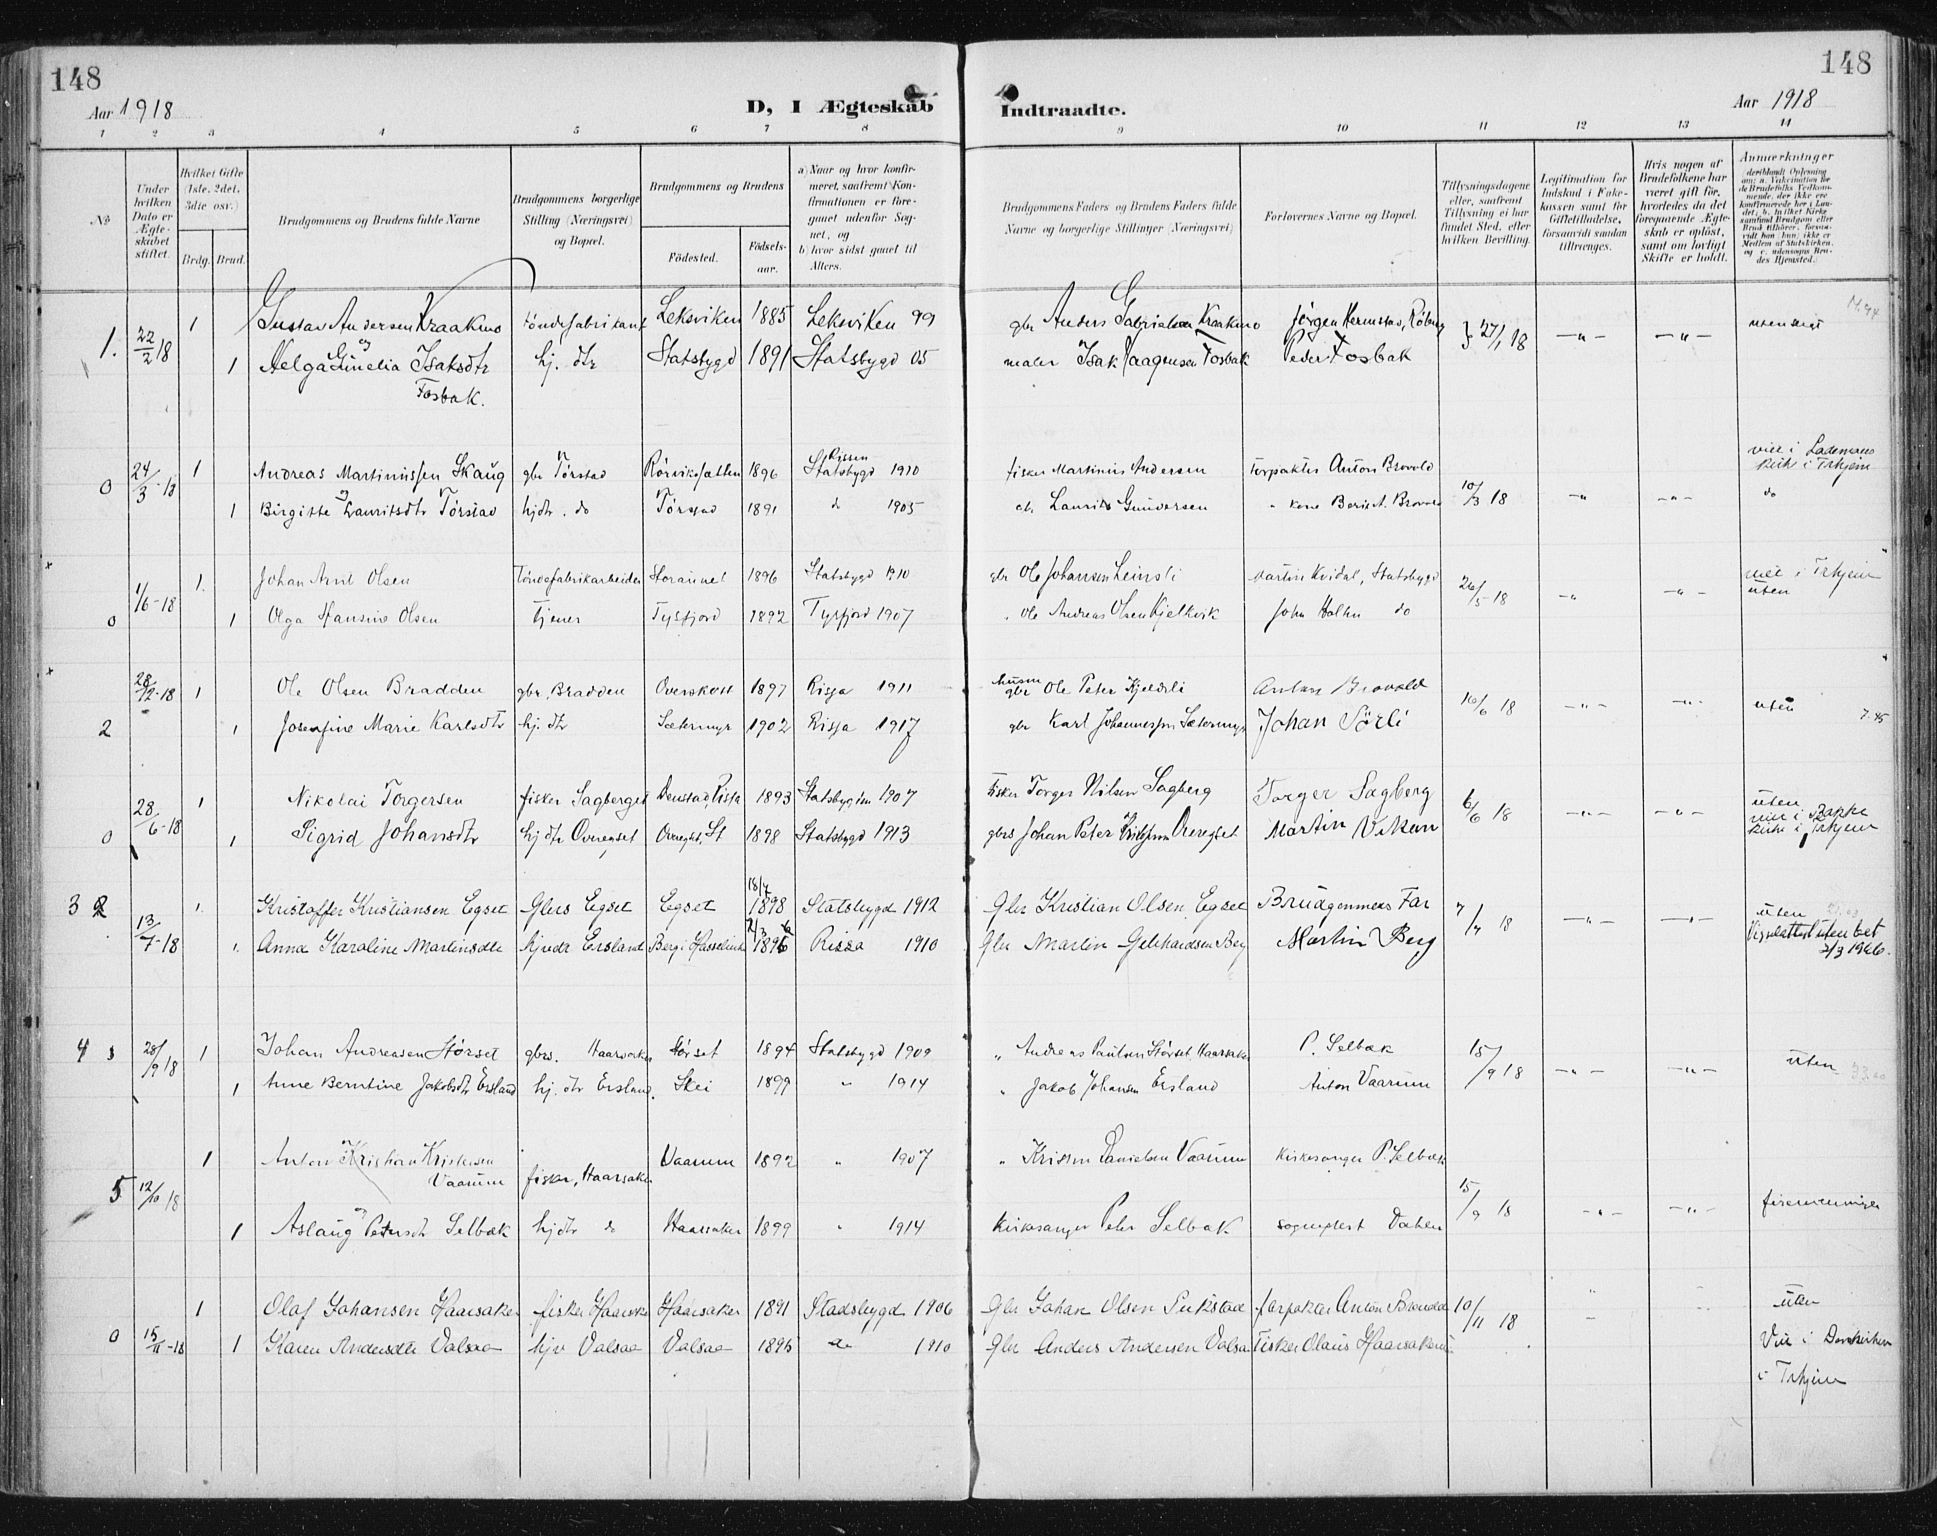 148
148
Aar 1918
D, I Ægteskab
Indtraadte.
Aar 1918
1 2 3 4 5 6 7 8 9 10 11 12 13 14
No
Under hvilken Dato er Ægteskabet stiftet.
Hvilket Gifte (1ste, 2det, 3die osv.)
Brdg. Brud.
Brudgommens og Brudens fulde Navne
Brudgommens borgerlige Stilling (Næringsvei) og Bopæl.
Brudgommens og Brudens
Fødested.
Fødselsaar.
a) Naar og hvor konfirmeret, saafremt Konfirmationen er foregaaet udenfor Sognet, og
b) hvor sidst gaaet til Alters.
Brudgommens Faders og Brudens Faders fulde Navne og borgerlige Stillinger (Næringsvei)
Forlovernes Navne og Bopæl.
Tillysningsdagene eller, saafremt Tillysning ei har fundet Sted, efter hvilken Bevilling.
Legitimation for Indskud i Enkekassen samt for Giftetilladelse, forsaavidt saadan tiltrænges.
Hvis nogen af Brudefolkene har været gift før, hvorledes da det foregaaende Ægteskab er opløst, samt om lovligt Skifte er holdt.
Anmærkninger
1. 22/2 18 1 Gustav Andersen Kraakmo tøndefabrikant Leksviken 1885 Leksviken 99 gbr Anders Gabrielsen Kraakmo Jørgen Hermstad, Røberg 27/1 18 -"- -"-
1 Helga Gunelia Isaksdtr hj. dtr Statsbygd 1891 Statsbygd 05 maler Isak Haagensen Fosbak Peder Fosbak
Fosbak.
0 24/3-18 1 Andreas Martinussen Skaug gbr Tørstad Rørvikfatten 1896 Rissen Statsbygd 1910 fisker Martinus Andersen forpakter Anton Brovold viet i Lademoens Kirke i Trhjem
1 Birgitte Lauritsdtr Tørstad hjdtr. do Tørstad 1891 do 1905 Laurits Gundersen " kone Berit A. Brovold 10/3 18 -"- do
1/6-18 1. Johan Arnt Olsen Tøndefabrikarbeider Storaunet 1896 Statsbygd 1910 gbr Ole Johansen Leinsli Martin Kvidal, Statsbygd 26/5-18 -"- viet i Trhjem
0 1 Olga Hansine Olsen Tjener Tysfjord 1892 Tysfjord 1907 " Ole Andreas Olsen Kjelkvik John Halhn do uten
28/12-18 1 Ole Olsen Bradden gbr, Bradden Overskott 1897 Rissa 1911 husm gbr Ole Peter Kjeldsli Anton Brovold 16/6 18 -"- -"- uten
2 1 Josefine Marie Karlsdtr hj. dtr Sætermyr 1902 Rissa 1917 gbr Karl Johannessen Sætermyr Johan Sørli
28/6-18 1 Nikolai Torgersen fisker Sagberget Denstad, Rissa 1893 Statsbygden 1907 Fisker Torger Nilsen Sagberg Torger Sagberg 6/6 18 -"- -"- uten
0 1 Sigrid Johansdtr hj dtr Overegset Overegset, St 1898 Statsbygd 1913 gbrs Johan Peter Overegset Martin Vikan viet i Bakke Kirke i Trhjem
3 13/7-18 1. Kristoffer Kristiansen Egset Gbrs Egset Egset 18/7 1898 Statsbygd 1912 Gbr Kristian Olsen Egset Brudgommens Far 7/7 18 -"- -"- uten
1. Anna Karoline Martinsdtr hjvdtr Ersland Berg i Hasselvik 2/3 1896 Rissa 1910 Gbr Martin Gebhardsen Berg Martin Berg 2/3 1966.
4 28/9 18 1 Johan Andreasen Størset gbrs. Haarsaker Størset 1894 Statsbygd 1909 " Andreas Paulsen Størset, Haarsaker P. Selbæk 15/9 18 -"- -"- uten
1 Anne Berntine Jakobsdtr Ersland hj. dtr Ersland. Skei 1899 " 1914 " Jakob Johansen Ersland Anton Vaarum
5 12/10 18 1 Anton Kristian Kristensen Vaarum fisker, Haarsaker Vaarum 1892 " 1907 " Kristen Danielsen Vaarum Kirkesanger P. Selbæk 15/9 18 -"- -"-
1 Aslaug Petersdtr Selbæk hjdtr do Haarsaker 1899 " 1914 Kirkesanger Peter Selbæk sogneprest Dahen
1 Olaf Johansen Haarsaker fisker Haarsaker Haarsaker 1891 Stadsbygd 1906 Gbr Johan Olsen Pukstad forpakter Anton Brovold 10/11 18 uten
0 15/11-18 1 Karen Andersdtr Valsaa hjv Valsaa Valsaa 1895 do 1910 Gbr Anders Andersen Valsaa Fisker Olaus Haarsaker Viet i Domkirken
i Trhjem